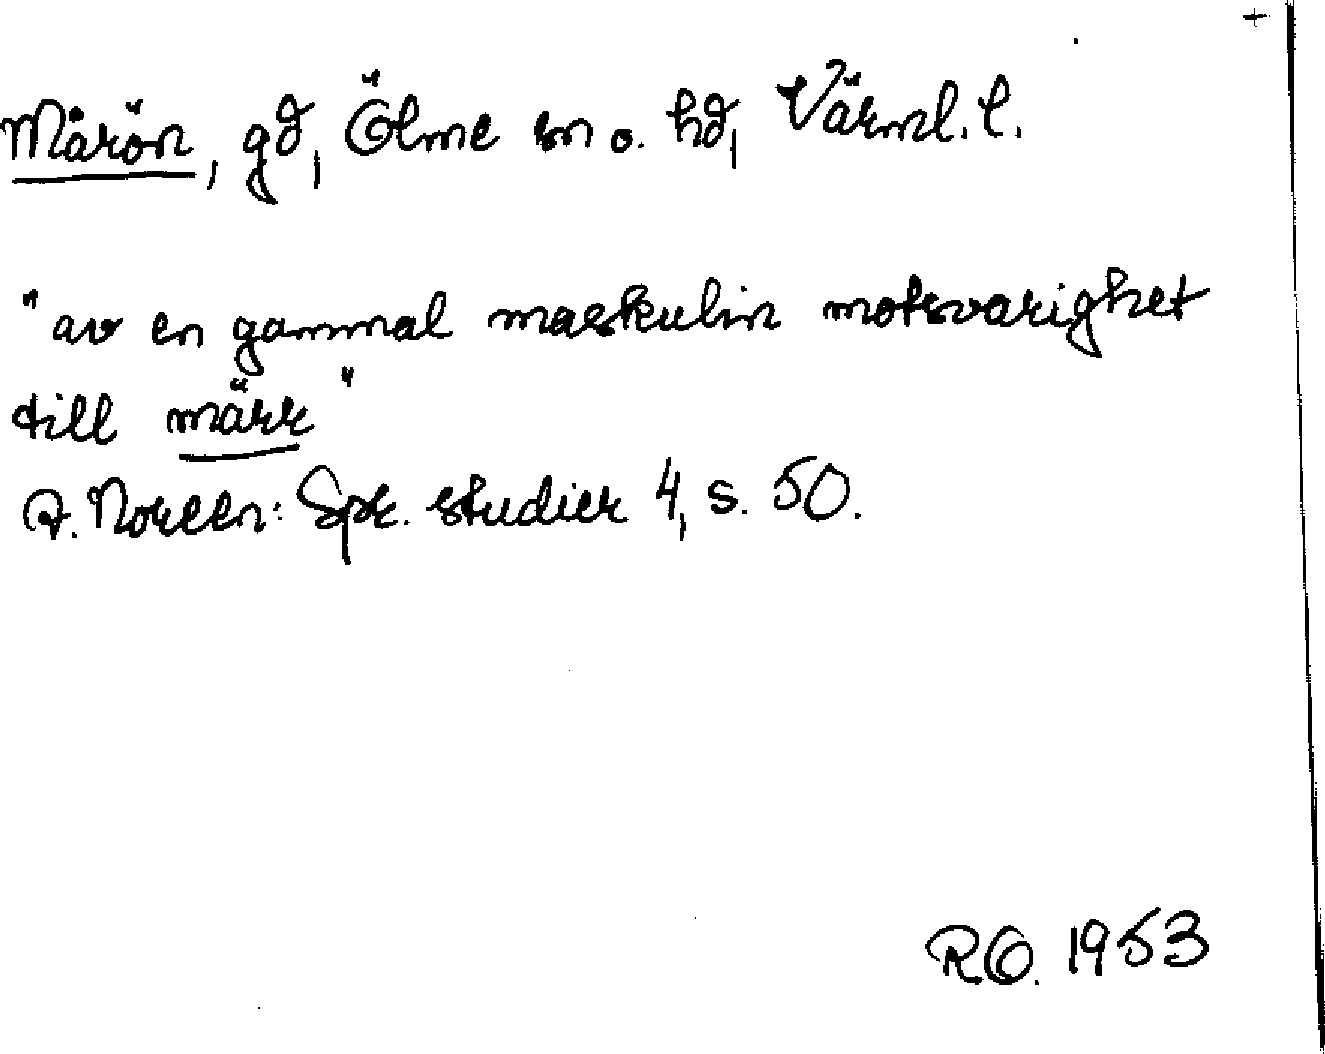 +
Märön, gd, Ölme sn o. hd, Värml. l.
"av en gammal maskulin motsvarighet
till märr"
A. Noreen: Spr. studier 4, s. 50.
RO. 1953